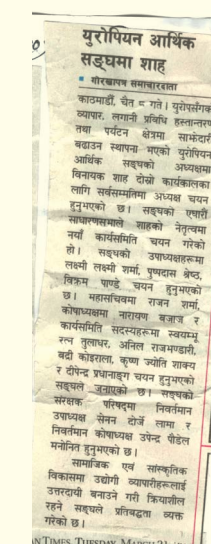 युरोपियन आर्थिक
सङ्घमा शाह
■ गोरखापत्र समाचारदाता
काठमाडौं, चैत ८ गते। युरोपसँग
व्यापार, लगानी प्रविधि हस्तान्तरण
तथा पर्यटन क्षेत्रमा साझेदारी
बढाउन स्थापना भएको युरोपियन
आर्थिक सङ्घको अध्यक्षमा
विनायक शाह दोस्रो कार्यकालका
लागि सर्वसम्मतिमा अध्यक्ष चयन
हुनुभएको छ। सङ्घको एघारौं
साधारणसभाले शाहको नेतृत्वमा
नयाँ कार्यसमिति चयन गरेको
हो। सङ्घको उपाध्यक्षहरूमा
लक्ष्मी लक्ष्मी शर्मा, पुष्पदास श्रेष्ठ,
विक्रम पाण्डे चयन हुनुभएको
छ। महासचिवमा राजन शर्मा,
कोषाध्यक्षमा नारायण बजाज र
कार्यसमिति सदस्यहरूमा स्वयम्भू
रत्न तुलाधर, अनिल राजभण्डारी,
बद्री कोइराला, कृष्ण ज्योति शाक्य
र दीपेन्द्र प्रधानाङ्ग चयन हुनुभएको
सङ्घले जनाएको छ। सङ्घको
संरक्षक परिषद्मा निवर्तमान
उपाध्यक्ष सेनन दोर्जे लामा र
निवर्तमान कोषाध्यक्ष उपेन्द्र पौडेल
मनोनित हुनुभएको छ।
सामाजिक एवं सांस्कृतिक
विकासमा उद्योगी व्यापारीहरूलाई
उत्तरदायी बनाउने गरी क्रियाशील
रहने सङ्घले प्रतिबद्धता व्यक्त
गरेको छ।
TIMES TUESDAY, MARCH 21